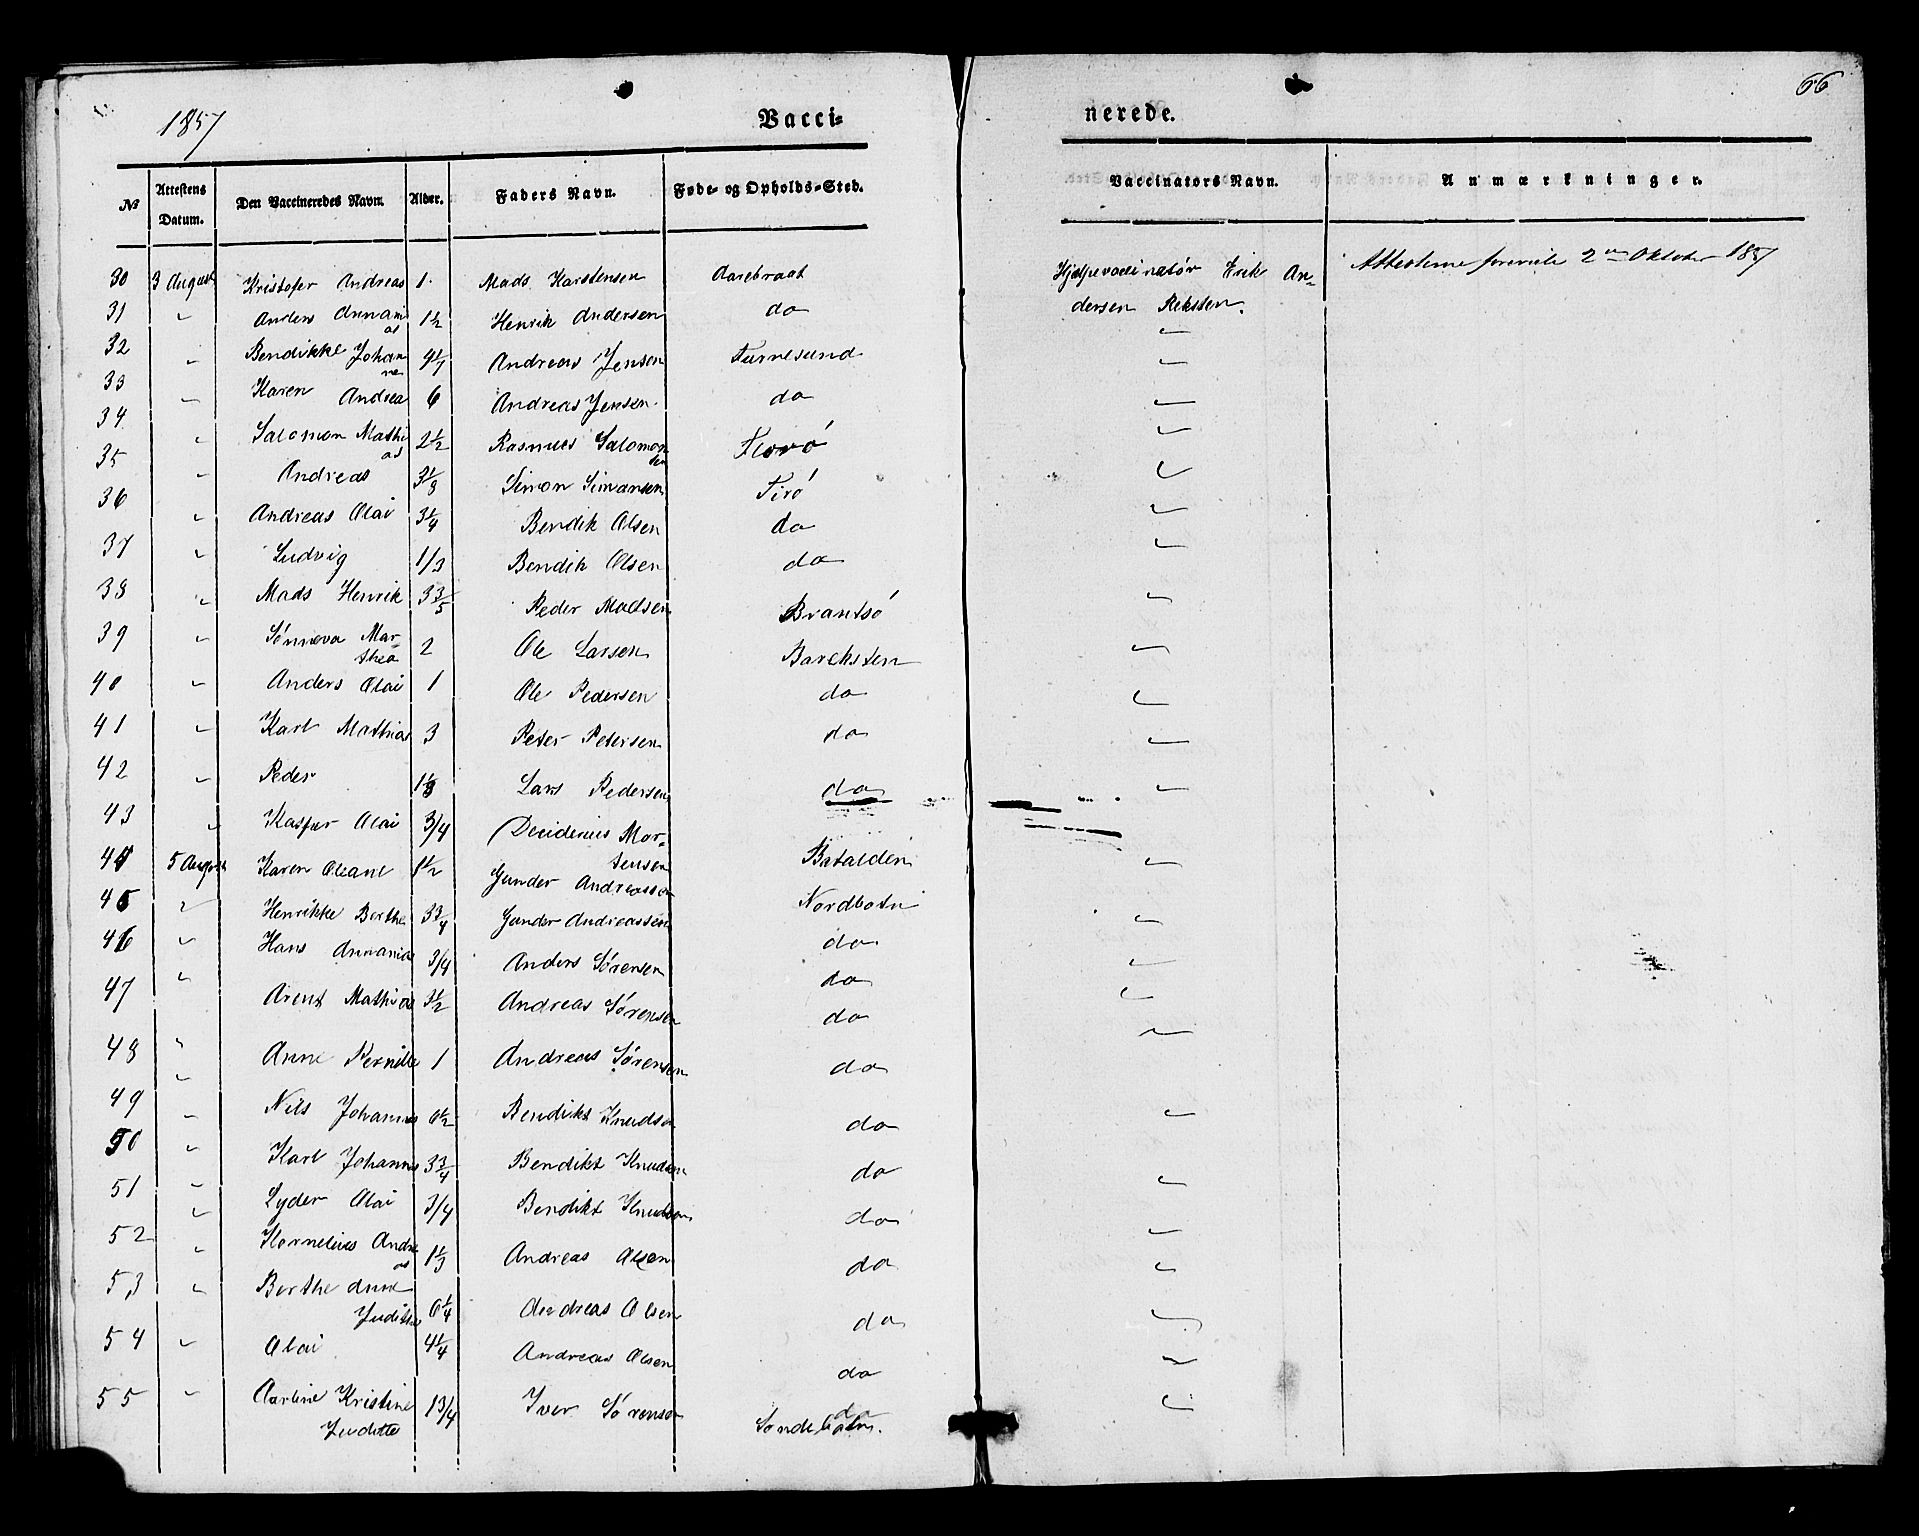 66
1857
Vacci- nerede.
No Attestens Datum. Den Vaccineredes Navn. Alder. Faders Navn. Føde- og Opholds-Sted. Vaccinators Navn. Anmærkninger.
30 3 August Kristofer Andreas 1 Mads Karstensen Aarebraat Hjelpevaccinatør Erik An- Attesterne 2 Oktober 1857
dersen Reksten.
31 " Anders Annani 1 1/2 Henrik Andersen do "
as
32 " Bendikke Johan Andreas Jensen Furresund "
ne
33 " Karen Andrea 6 Andreas Jensen do "
34 " Salomon Mathi 2 1/2 Rasmus Salomon Florø "
as sen
35 " Andreas Simon Simonsen Tirø "
36 " Andreas Olai 3 1/4 Bendik Olsen do "
37 " Ludvig 1/3 Bendik Olsen do "
38 " Mads Henrik 3 3/5 Peder Madsen Brantsø "
39 " Sønneva Mar- 2 Ole Larsen Bareksten "
thea
40 " Anders Olai 1 Ole Pedersen do "
41 " Karl Mathias 3 Peter Petersen do "
42 " Peder Lars Pedersen do "
43 " Kasper Olai 3/4 Desiderius Mor-
tensen Batalden "
44 5 August Karen Oleane 1 1/2 Gunder Andreassen Nordbotn "
45 " Henrikke Berthe 3 3/4 Gunder Andreassen do "
46 " Hans Annanias 3/4 Anders Sørensen do "
47 " Arent Mathias 3 1/2 Andreas Sørensen do "
48 " Anne Pernille 1 Andreas Sørensen do
49 " Nils Johannes 6 1/2 Bendikt Knudsen do "
50 " Karl Johannes 3 3/4 Bendikt Knudsen do "
51 " Lyder Olai 3/4 Bendikt Knudsen do "
52 " Kornelius Andre 1 1/3 Andreas Olsen do "
as
53 " Berthe Anne
Judithe 6 1/4 Andreas Olsen do "
54 " Olai 4 1/4 Andreas Olsen do "
55 " Karline Kristine 1 3/4 Iver Sørensen do "
Juditte